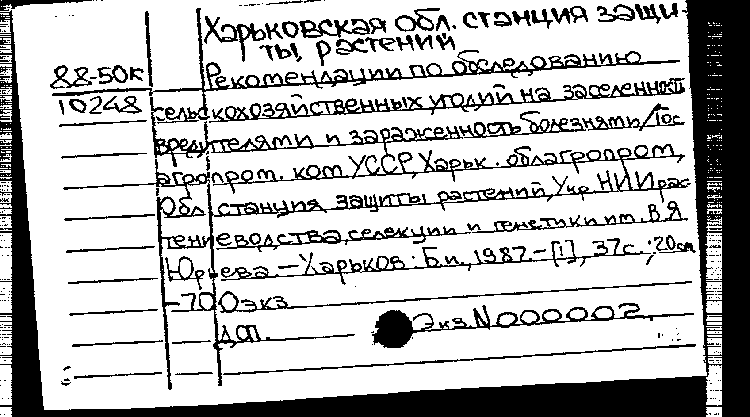 Харьковская обл. станция защи-
ты растений
88-50к
10248
Рекомендации по обследованию
сельскохозяйственных угодий на заселенность
вредителями и зараженность болезнями/Гос
агропром. ком УССР, Харьк. облагропром,
Обл станция защиты растений, Укр НИИ рас
тениеводства, селекции и генетики им. В.Я
Юрьева — Харьков: Б.и., 1987. - [1], 37с.; 20см
-700экз
Д.СП.
Экз. N000002.